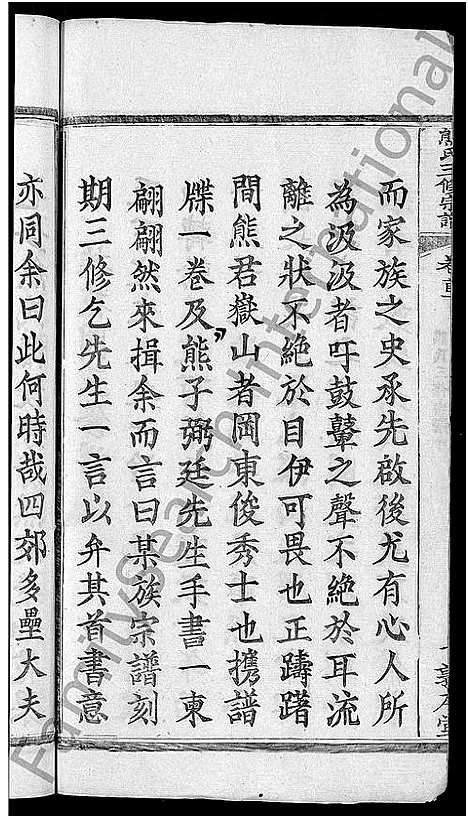 熊氏三修宗譜
卷首
敦本堂
而家族之史承先啟後尤有心人所
為汲汲者吁鼓鼙之聲不絕於耳流
離之狀不絕於目伊可畏也正躊躇
間熊君嶽山者岡東俊秀士也携譜
牒一卷及熊子弼廷先生手書一柬
翩翩然來揖余而言曰某族宗譜刻
期三修乞先生一言以弁其首書意
亦同余曰此何時哉四郊多壘大夫
Familysearch International